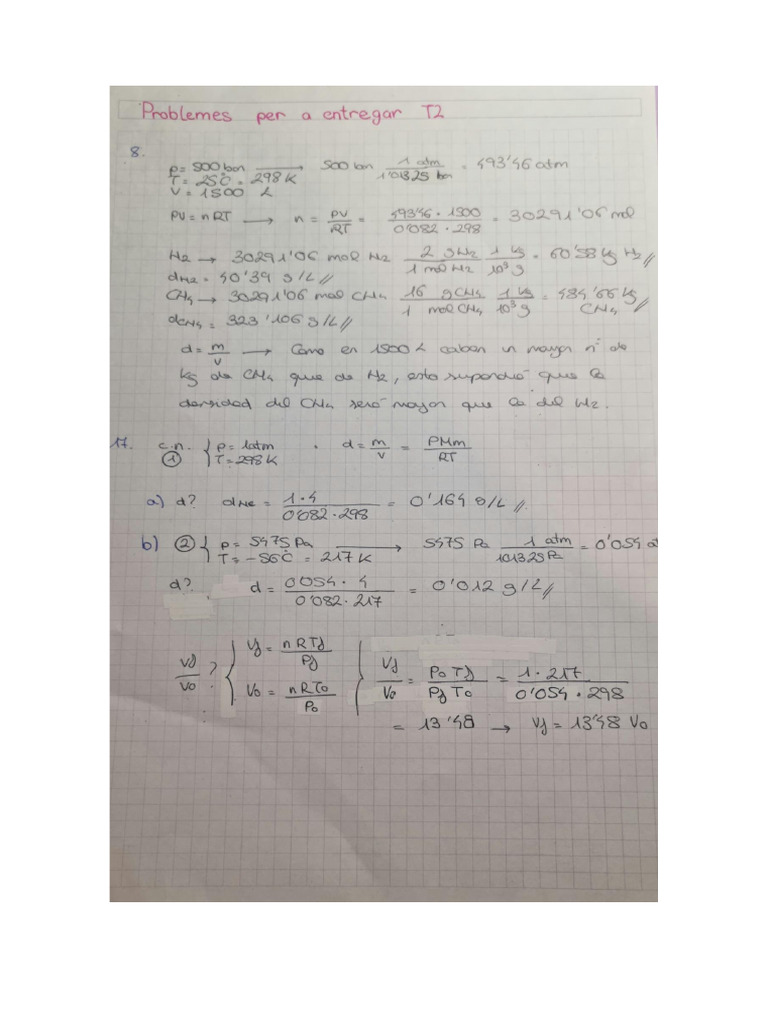 Problemes per a entregar T2
8.
p = 500 bar → 500 bar 1 atm / 1'01325 bar = 493'46 atm
T = 25°C = 298 K
V = 1500 L
PV = nRT → n = PV / RT = 493'46 · 1500 / 0'082 · 298 = 30291'06 mol
H2 → 30291'06 mol H2 2 g H2 / 1 mol H2 1 kg / 10³ g = 60'58 kg H2 //
dH2 = 40'39 g/L //
CH4 → 30291'06 mol CH4 16 g CH4 / 1 mol CH4 1 kg / 10³ g = 484'66 kg CH4 //
dCH4 = 323'106 g/L //
d = m / v → Como en 1500 L caben un mayor nº de
kg de CH4 que de H2, esto supondrá que la
densidad del CH4 será mayor que la del H2.
17. c.n. ① { p = 1 atm T = 298 K · d = m / v = PMm / RT
a) d? dHe = 1 · 4 / 0'082 · 298 = 0'164 g/L //
b) ② { p = 5475 Pa → 5475 Pa 1 atm / 101325 Pa = 0'054 at
T = -56°C = 217 K
d? d = 0'054 · 4 / 0'082 · 217 = 0'012 g/L //
Vf / Vo ? { Vf = nRTf / Pf Vo = nRTo / Po { Vf / Vo = Po Tf / Pf To = 1 · 217 / 0'054 · 298
= 13'48 → Vf = 13'48 Vo